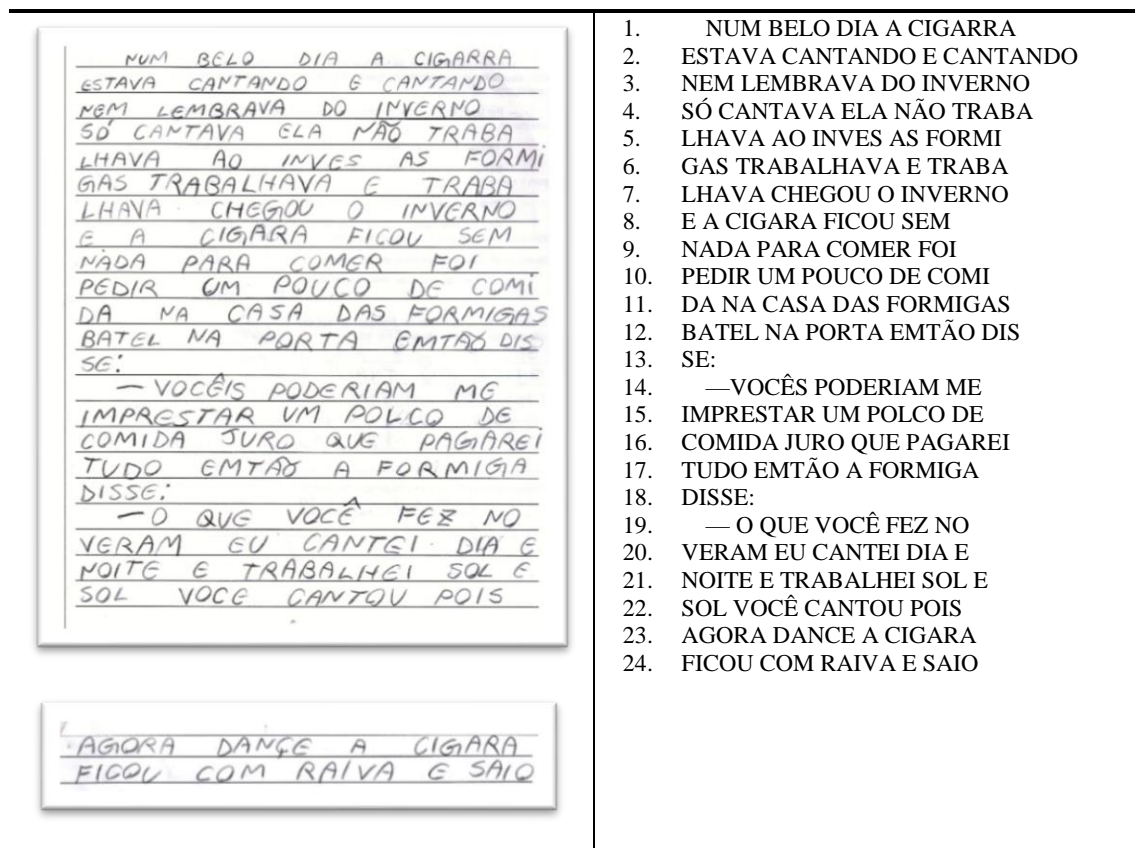 NUM BELO DIA A CIGARRA
ESTAVA CANTANDO E CANTANDO
NEM LEMBRAVA DO INVERNO
SÓ CANTAVA ELA NÃO TRABA
LHAVA AO INVES AS FORMI
GAS TRABALHAVA E TRABA
LHAVA CHEGOU O INVERNO
E A CIGARA FICOU SEM
NADA PARA COMER FOI
PEDIR UM POUCO DE COMI
DA NA CASA DAS FORMIGAS
BATEL NA PORTA EMTÃO DIS
SE:
— VOCÊIS PODERIAM ME
IMPRESTAR UM POLCO DE
COMIDA JURO QUE PAGAREI
TUDO EMTÃO A FORMIGA
DISSE:
— O QUE VOCÊ FEZ NO
VERAM EU CANTEI DIA E
NOITE E TRABALHEI SOL E
SOL VOCE CANTOU POIS
AGORA DANÇE A CIGARA
FICOU COM RAIVA E SAIO
1. NUM BELO DIA A CIGARRA
2. ESTAVA CANTANDO E CANTANDO
3. NEM LEMBRAVA DO INVERNO
4. SÓ CANTAVA ELA NÃO TRABA
5. LHAVA AO INVES AS FORMI
6. GAS TRABALHAVA E TRABA
7. LHAVA CHEGOU O INVERNO
8. E A CIGARA FICOU SEM
9. NADA PARA COMER FOI
10. PEDIR UM POUCO DE COMI
11. DA NA CASA DAS FORMIGAS
12. BATEL NA PORTA EMTÃO DIS
13. SE:
14. —VOCÊS PODERIAM ME
15. IMPRESTAR UM POLCO DE
16. COMIDA JURO QUE PAGAREI
17. TUDO EMTÃO A FORMIGA
18. DISSE:
19. — O QUE VOCÊ FEZ NO
20. VERAM EU CANTEI DIA E
21. NOITE E TRABALHEI SOL E
22. SOL VOCÊ CANTOU POIS
23. AGORA DANCE A CIGARA
24. FICOU COM RAIVA E SAIO